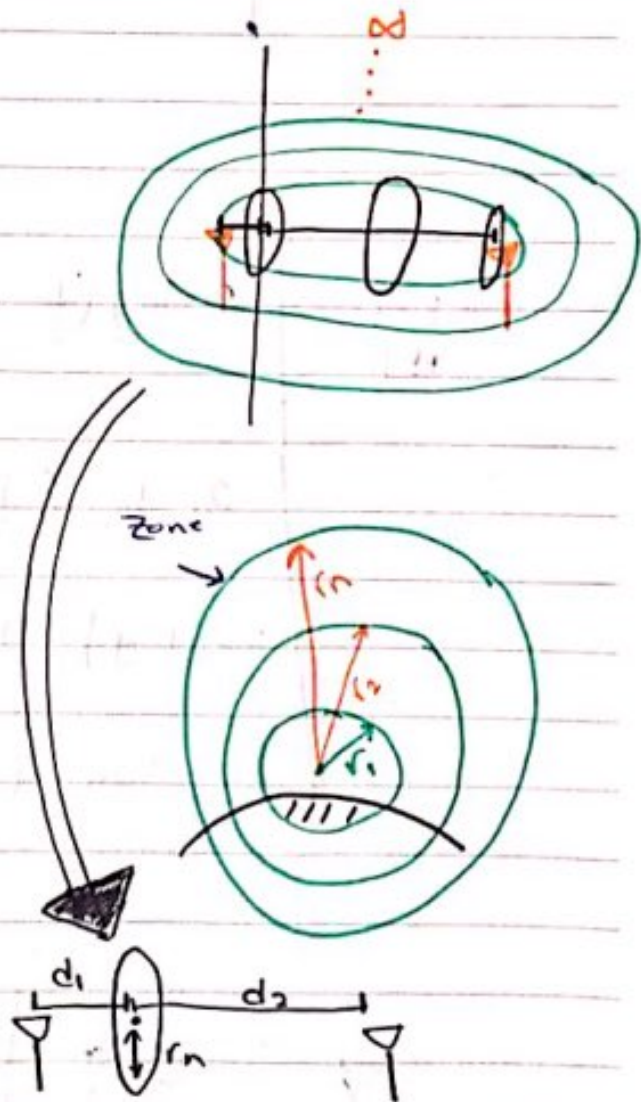 ∞
Zone
rn
r2
r1
d1
d2
rn